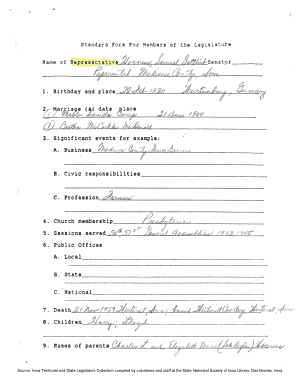 Standard Form For Members of the Legislature
Name of Representative Hoerner, Samuel Gottlieb Senator
Represented Madison County, Iowa
1. Birthday and place 20 Feb 1880 Wurtemburg, Germany
2. Marriage (s) date place
① Mable 21 1904
② Bertha
3. Significant events for example:
A. Business Madison County
B. Civic responsibilities
C. Profession Farmer
4. Church membership Presbyterian
5. Sessions served 50th, 51st General Assemblies 1943, 1945
6. Public Offices
A. Local
B. State
C. National
7. Death 21 Nov 1959 Iowa; buried Cemetery Iowa
8. Children Harry; Lloyd
9. Names of parents Charles L. and Elizabeth Hoerner
Source: Iowa Territorial and State Legislators Collection compiled by volunteers and staff at the State Historical Society of Iowa Library, Des Moines, Iowa.